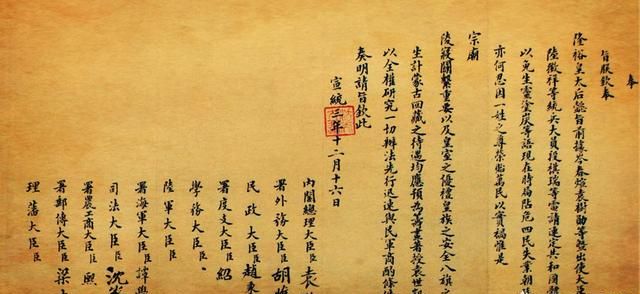 奉
旨朕欽奉
隆裕皇太后懿旨前據岑春煊袁樹勛等暨出使大臣
陸徵祥等統兵大員段祺瑞等電請速定共和國體
以免生靈塗炭等語現在時局阽危四民失業朝
亦何忍因一姓之尊榮貽萬民以實禍惟是
宗廟
陵寢關繫重要以及皇室之優禮皇族之安全八旗之
生計蒙古回藏之待遇均應預為籌畫著授袁世
以全權研究一切辦法先行迅速與民軍商酌條
奏明請旨欽此
宣統三年十二月十六日
內閣總理大臣臣袁
署外務大臣臣胡惟
民政大臣臣趙秉
署度支大臣臣紹
學務大臣臣
陸軍大臣臣
署海軍大臣臣譚學
司法大臣臣沈家
署農工商大臣臣熙
署郵傳大臣臣梁
理藩大臣臣